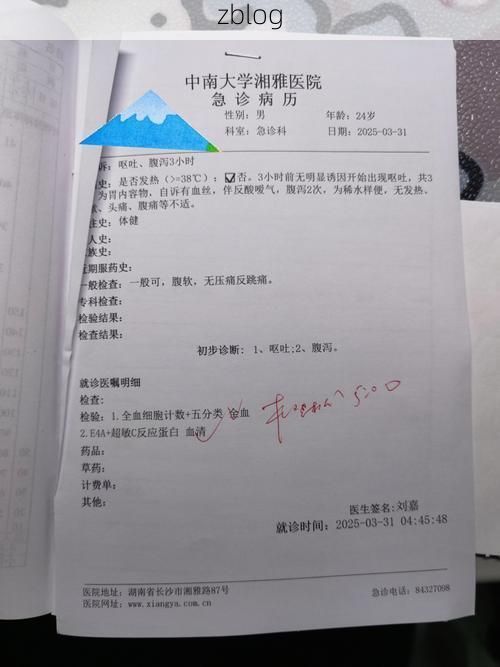 zblog
中南大学湘雅医院
急诊病历
性别：男 年龄：24岁
科室：急诊科 日期：2025-03-31
诉：呕吐、腹泻3小时
史：是否发热（>=38℃）：☑否。3小时前无明显诱因开始出现呕吐，共3
为胃内容物，自诉有血丝，伴反酸嗳气，腹泻2次，为稀水样便，无发热、
、头痛、腹痛等不适。
往史：体健
人史：
族史：
近期服药史：
一般检查：一般可，腹软，无压痛反跳痛。
专科检查：
检验结果：
检查结果：
初步诊断：1、呕吐;2、腹泻。
就诊医嘱明细
检查：
检验：1.全血细胞计数+五分类 全血
2.E4A+超敏C反应蛋白 血清
药品：
草药：
计费单：
其他：
医生签名:刘嘉
就诊时间：2025-03-31 04:45:48
医院地址：湖南省长沙市湘雅路87号 急诊电话：84327098
医院网址：www.xiangya.com.cn